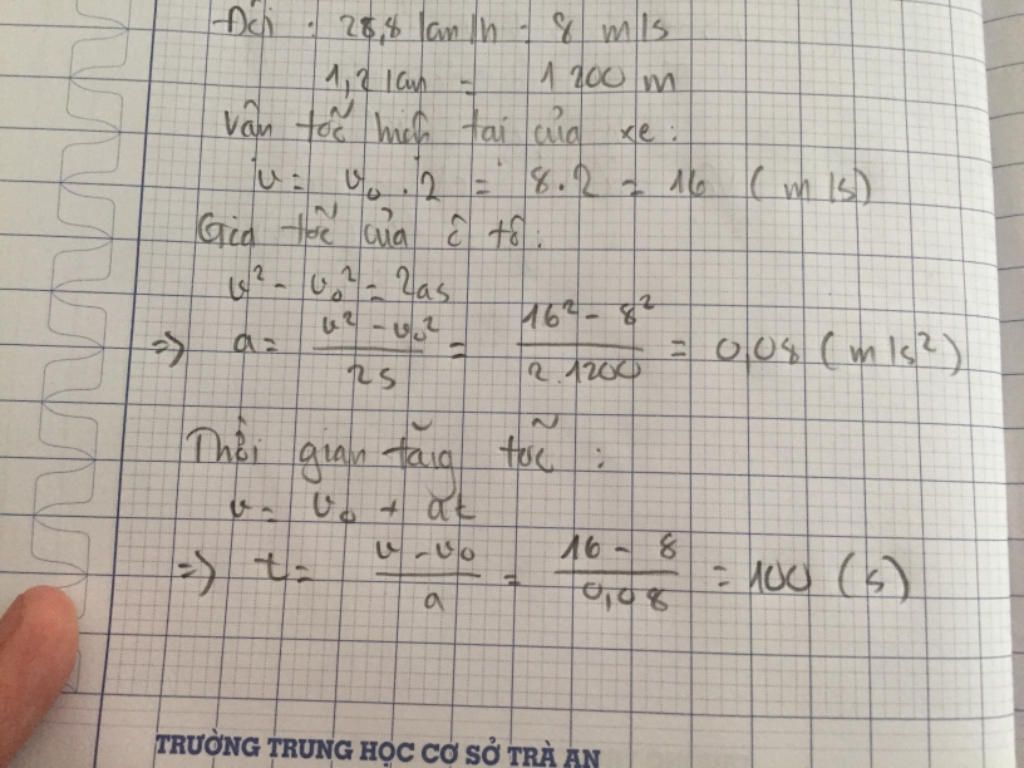 Đổi : 28,8 km/h = 8 m/s
1,2 km = 1200 m
Vận tốc hiện tại của xe:
v = v₀.2 = 8.2 = 16 (m/s)
Gia tốc của ô tô:
v² - v₀² = 2as
=> a = (v² - v₀²)/(2s) = (16² - 8²)/(2.1200) = 0,08 (m/s²)
Thời gian tăng tốc :
v = v₀ + at
=> t = (v - v₀)/a = (16 - 8)/(0,08) = 100 (s)
TRƯỜNG TRUNG HỌC CƠ SỞ TRÀ AN